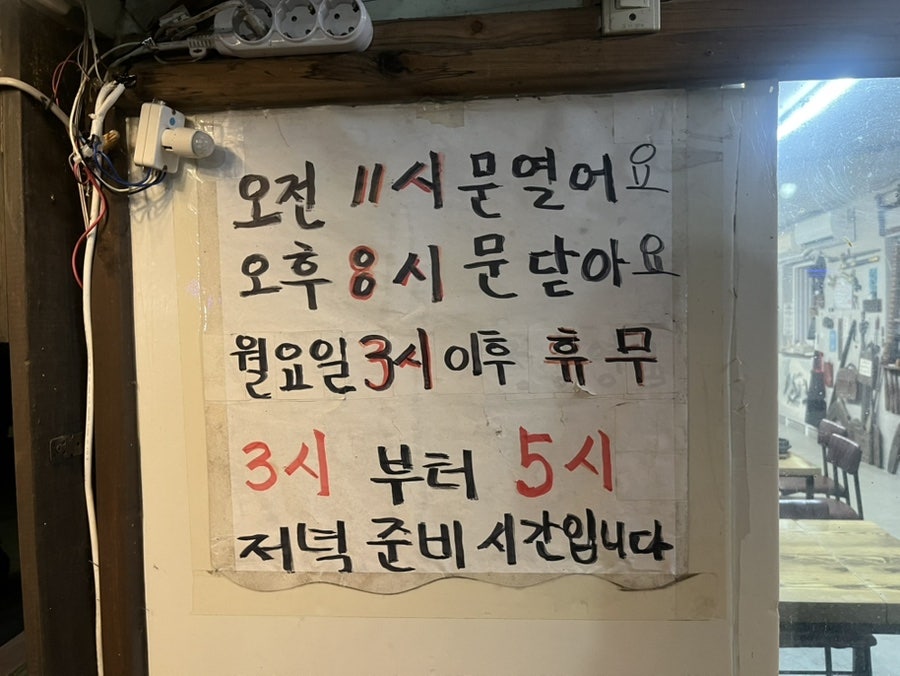 오전 11시 문열어요
오후 8시 문 닫아요
월요일 3시 이후 휴무
3시 부터 5시
저녁 준비 시간입니다